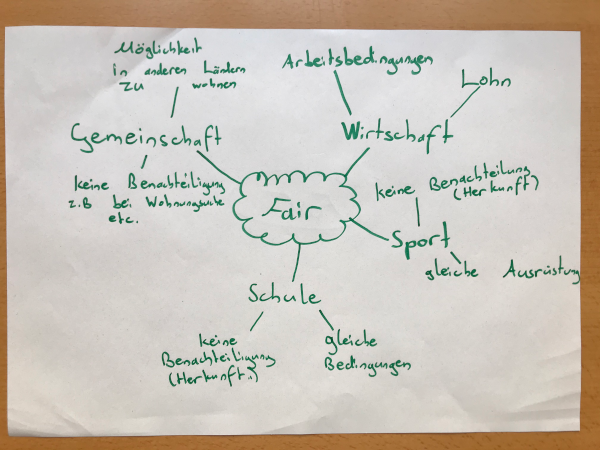 Möglichkeit
in anderen Ländern
zu wohnen
Gemeinschaft
keine Benachteiligung
z.B bei Wohnungssuche
etc.
Arbeitsbedingungen
Lohn
Wirtschaft
Fair
keine Benachteilung
(Herkunft)
Sport
gleiche Ausrüstung
Schule
keine
Benachteiligung
(Herkunft..)
gleiche
Bedingungen